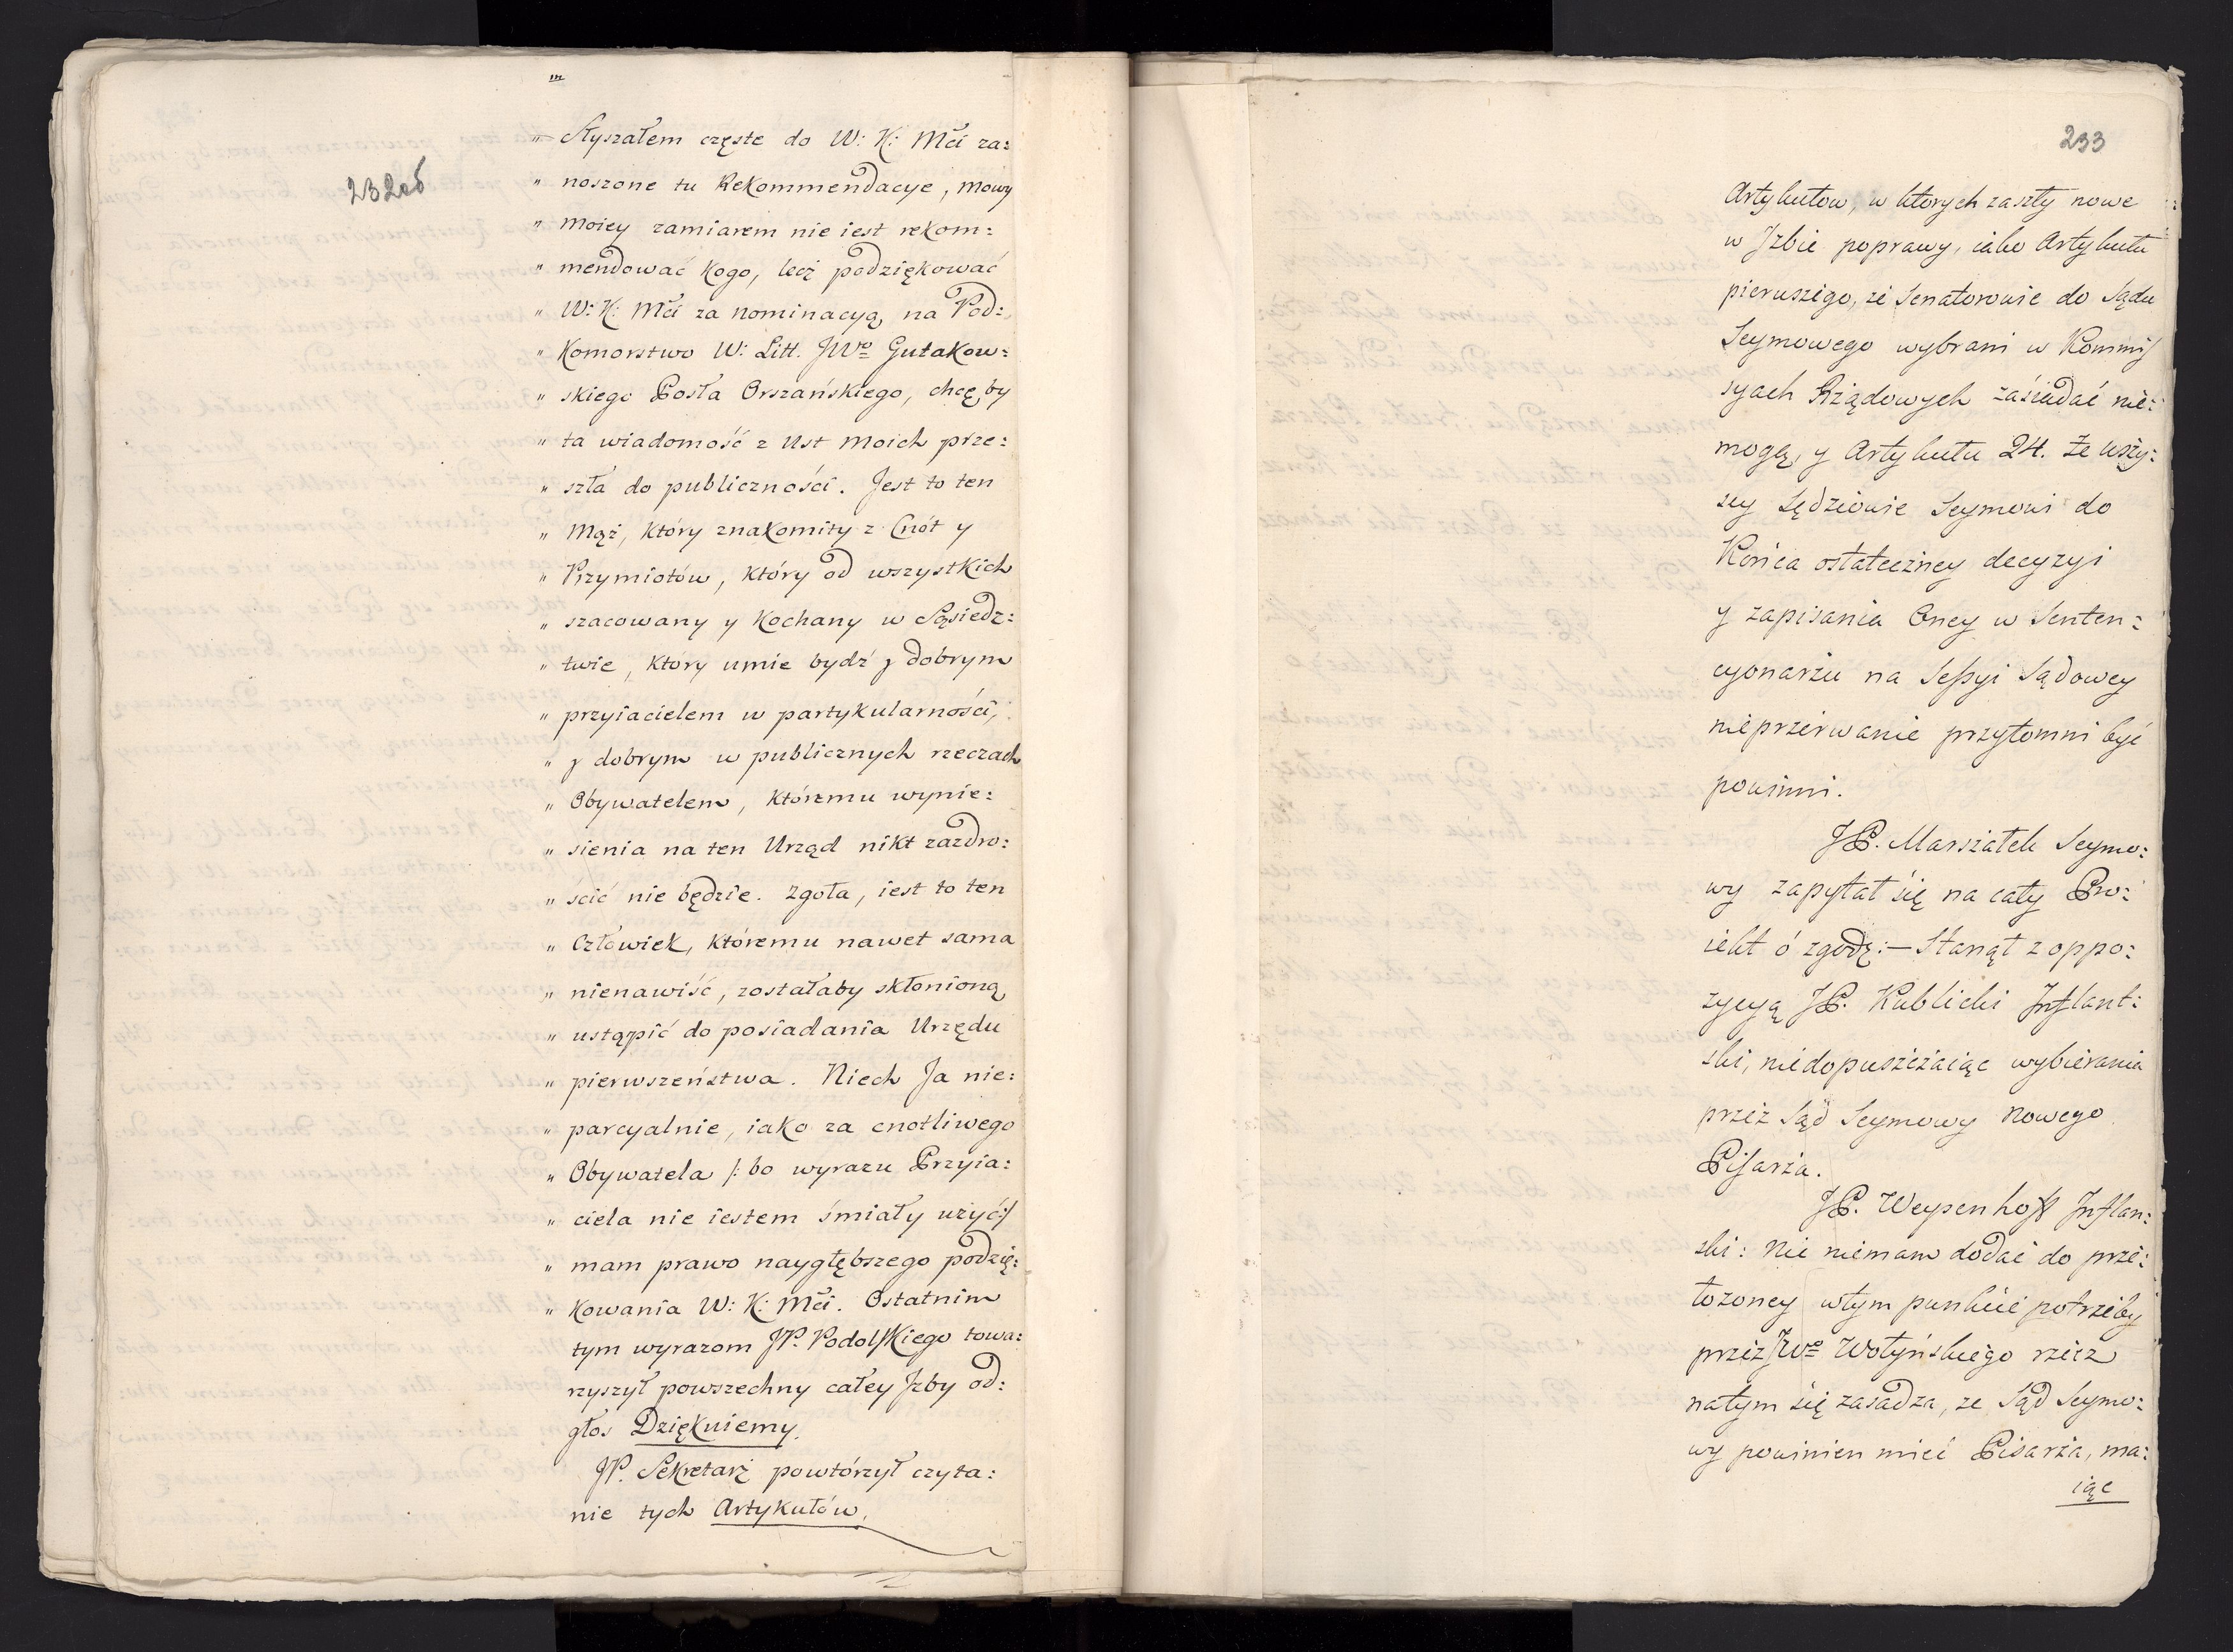 232об
„ Słyszałem częste do W: K: Mći za:
„ noszone tu Rekommendacye, mowy
„ moiey zamiarem nie iest rekom:
„ mendować kogo, lecz podziękować
„ W: K: Mći za nominacyą na Pod:
„ Komorstwo W: Litt. JWo Gutakow:
„ skiego Posła Orszańskiego, chcę by
„ ta wiadomość z Ust moich prze:
„ szła do publiczności. Jest to ten
„ Mąż, który znakomity z Cnót y
„ Przymiotów, który od wszystkich
„ szacowany y kochany w Sąsiedz:
„ twie, który umie bydź y dobrym
„ przyiacielem w partykularności,
„ y dobrym w publicznych rzeczach
„ Obywatelem, któremu wynie:
„ sienia na ten Urząd nikt zazdro:
„ ścić nie będzie. Zgoła, iest to ten
„ Człowiek, któremu nawet sama
„ nienawiść, zostałaby skłonioną
„ ustąpić do posiadania Urzędu
„ pierwszeństwa. Niech Ja nie:
„ parcyalnie, iako za cnotliwego
„ Obywatela /: bo wyrazu Przyia:
„ ciela nie iestem śmiały użyć:/
„ mam prawo naygłębszego podzię:
„ kowania W: K: Mći. Ostatnim
tym wyrazom JP. Podolskiego towa:
rzyszył powszechny całey Jzby od:
głos Dziękuiemy.
JP. Sekretarz powtórzył czyta:
nie tych Artykułów.
233
Artykułow, w ktorych zaszły nowe
w Jzbie poprawy, iako Artykułu
pierwszego, że Senatorowie do Sądu
Seymowego wybrani w Kommis
syach Rządowych zasiadać nie:
mogą, y Artykułu 24. że wszy:
scy Sędziowie Seymowi do
Końca ostateczney decyzyi
y zapisania Oney w Senten:
cyonarzu na Sessyi Sądowey
nieprzerwanie przytomni być
powinni.
JP. Marszałek Seymo:
wy zapytał się na cały Pro:
iekt ó zgodę:— Stanął z oppo:
zycyą JP. Kublicki Jnflant:
ski, niedopuszczaiąc wybierania
przez Sąd Seymowy nowego
Pisarza.
JP. Weyssenhoff Jnflan:
ski: Nic niemam dodać do prze:
łozoney wtym punkcie potrzeby
przez JWo Wołyńskiego rzecz
natym się zasadza, ze Sąd Seymo:
wy powinien mieć Pisarza, ma:
iąc